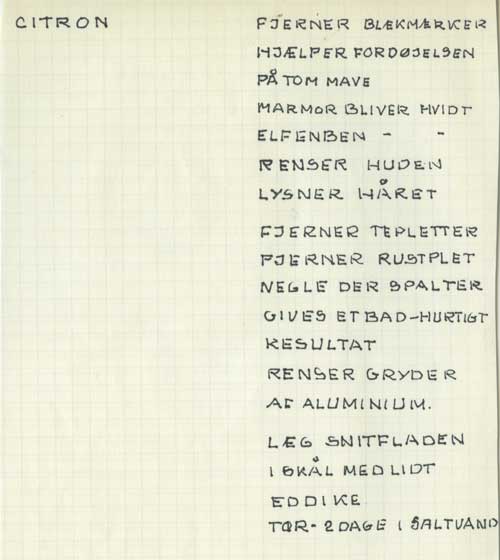 CITRON FJERNER BLÆKMÆRKER
HJÆLPER FORDØJELSEN
PÅ TOM MAVE
MARMOR BLIVER HVIDT
ELFENBEN - -
RENSER HUDEN
LYSNER HÅRET
FJERNER TEPLETTER
FJERNER RUSTPLET
NEGLE DER SPALTER
GIVES ET BAD-HURTIGT
RESULTAT
RENSER GRYDER
AF ALUMINIUM.
LÆG SNITFLADEN
I SKÅL MED LIDT
EDDIKE
TØR- 2 DAGE I SALTVAND